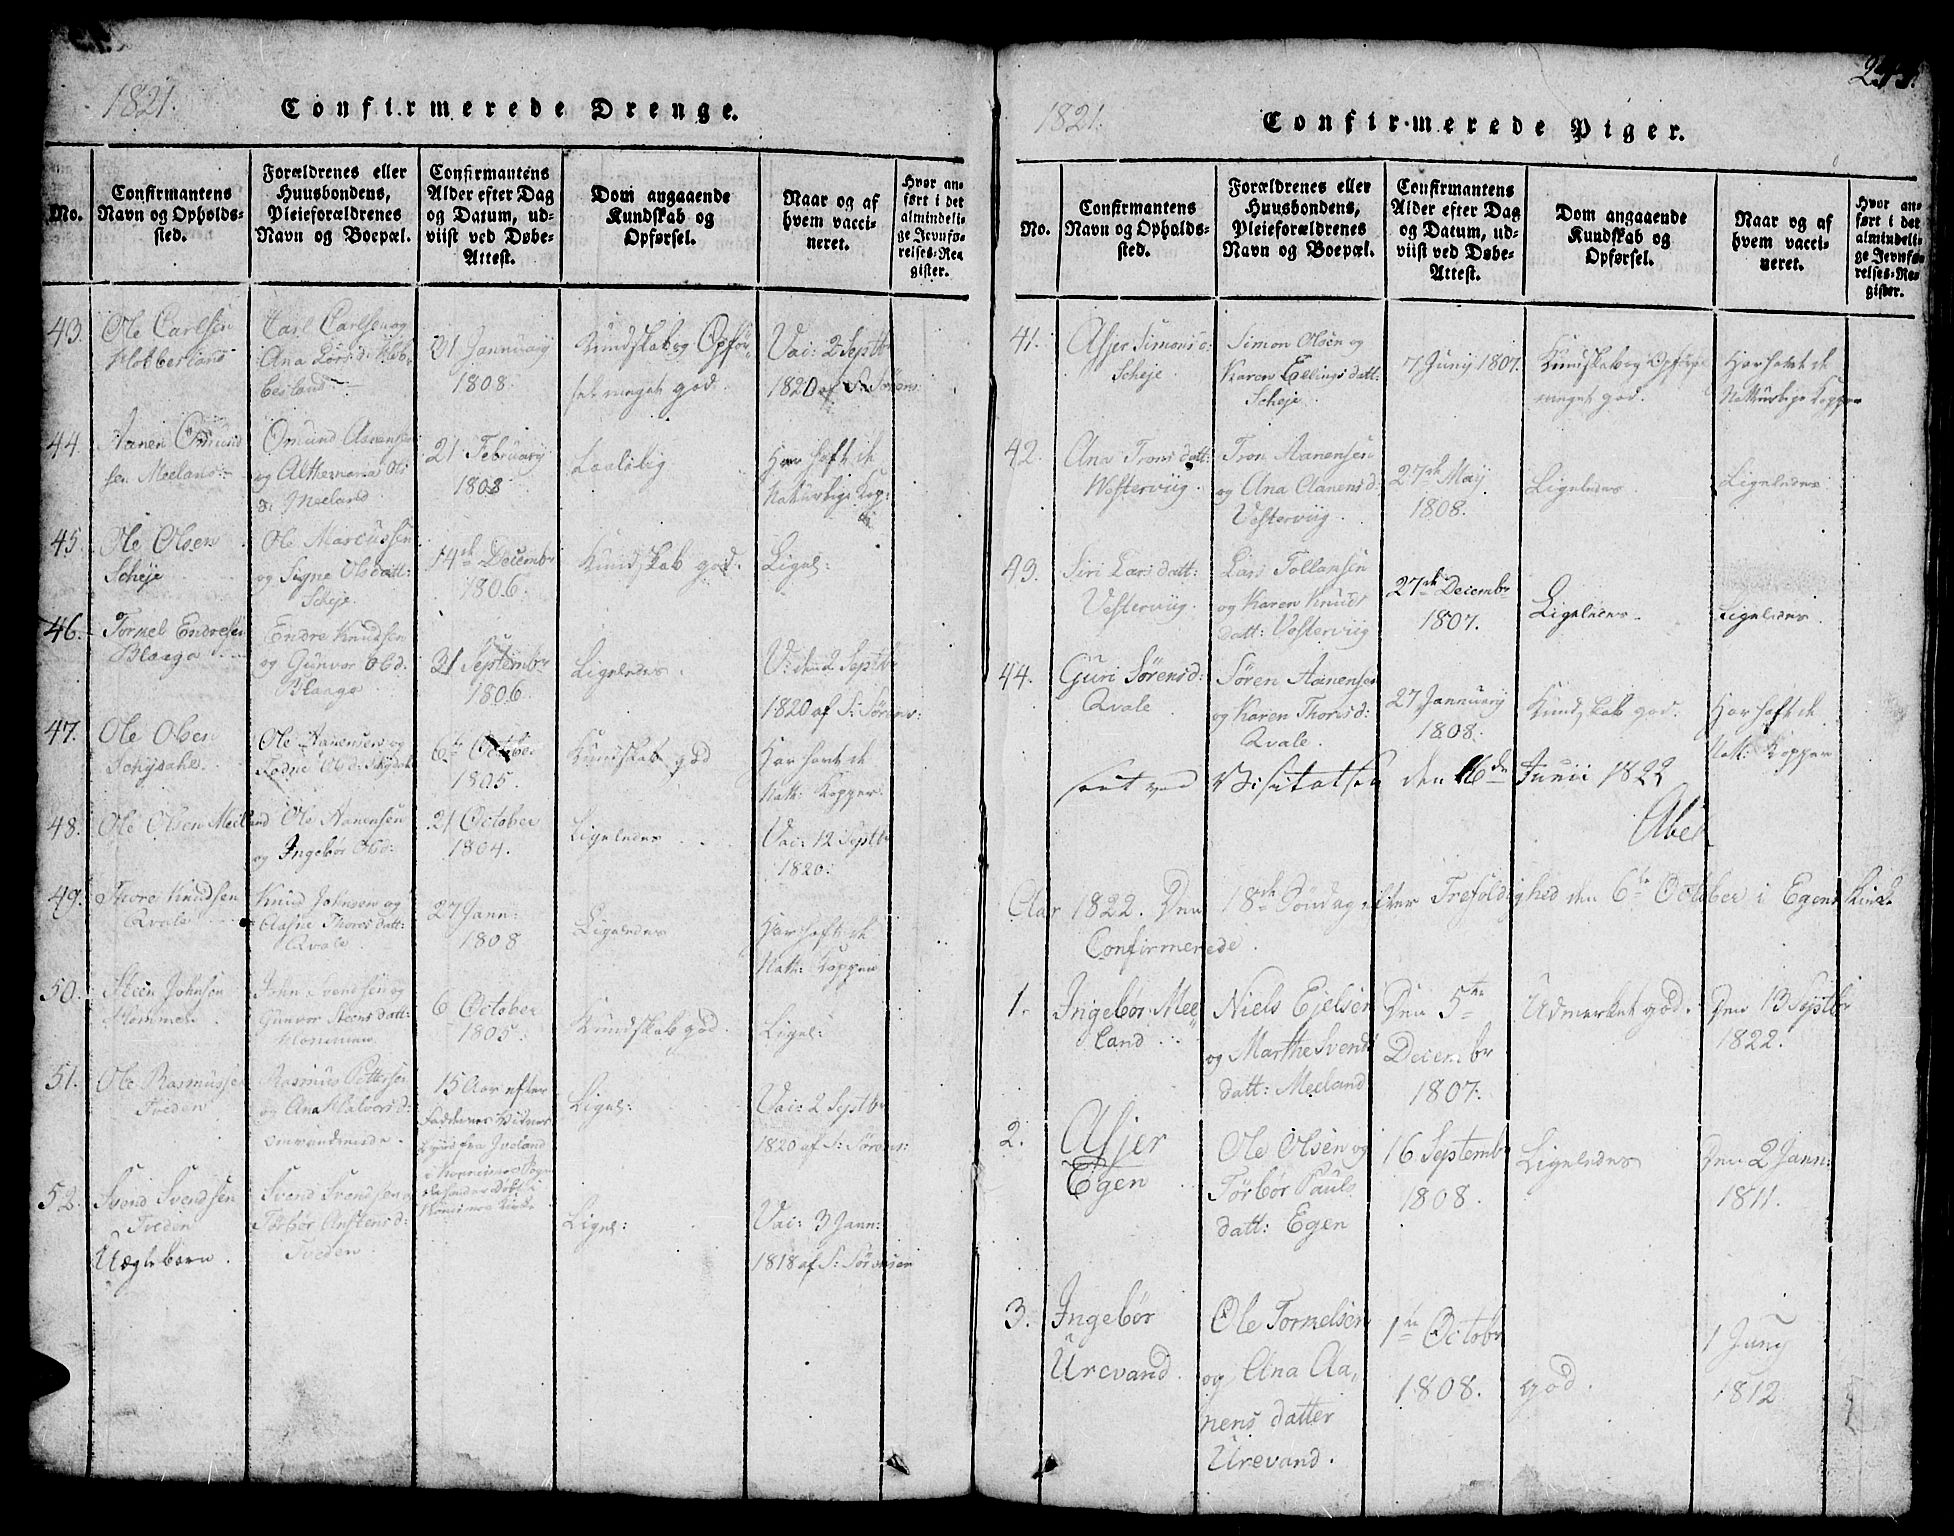 1821.
Confirmerede Drenge.
No.
Confirmantens
Navn og Opholds-
sted.
Forældrenes eller
Huusbondens,
Pleieforældrenes
Navn og Boepæl.
Confirmantens
Alder efter Dag
og Datum, ud-
viist ved Døbe-
Attest.
Dom angaaende
Kundskab og
Opførsel.
Naar og af
hvem vacci-
neret.
Hvor an-
ført i det
almindeli-
ge Jevnfø-
relses-Re-
gister.
43.
Ole Carlsen
Klobbesland
Carl Carlsen og
Ana Larsd: Klob-
besland
21 Jannuary
1808.
Kundskab og Opfør-
sel meget god.
Vac: 2 Septbr
1820 af S: Sørens:
44.
Aanen Omund
sen Meeland
Omund Aanensen
og Althemaria Ols
d: Meeland
21 February
1808
Laalelig
Har haft de
Naturlige Kop-
45.
Ole Olsen
Scheje
Ole Marcussen
og Signe Olsdatt:
Scheje.
14de Decembr
1806.
Kundskab god.
Ligel:
46.
Tornel Endresen
Blaaga
Endre Knudsen
og Gunvor Olsd.
Blaaga
21 Septembr
1806.
Ligeledes.
V: den 2 Septbr
1820 af S: Sørens:
47.
Ole Olsen
Ole Aanensen og
6te October
1805.
Kundskab god
Har havt de
Nath: Kopper
48.
Ole Olsen Meeland
Ole Aanensen
og Ingebør Olsd:
21 October
1804.
Ligeledes
Vac: 12 Septbr
1820.
49.
Thore Knudsen
Qvale
Knud Johnsen og
Aasne Thoresdatt:
Qvale.
27 Jann:
1808
Ligeledes
Har haft de
Nath: Kopper
50.
Steen Johnsen
Hommen
John Svendsen og
Gunvor Steensdatt:
Hommen
6 October
1805.
Kundskab god.
Ligel:
51.
Ole Rasmussen
Tveden
Rasmus Pettersen
og Ana Halvorsd:
omvandrende.
15 Aar efter
Faddernes Vidnes
byrd fra Iveland
Ligel:
Vac: 2 Septbr
1820 af S: Sørens:
52.
Svend Svendsen
Tveden
Uægtebarn.
Svend Svendsen og
Torbør Anstensd:
Tveden.
Ligel:
Vac: 3 Jann:
1818 af S: Sørensen
1821.
Confirmerede Piger.
No.
Confirmantens
Navn og Opholds-
sted.
Forældrenes eller
Huusbondens,
Pleieforældrenes
Navn og Boepæl.
Confirmantens
Alder efter Dag
og Datum, ud-
viist ved Døbe-
Attest.
Dom angaaende
Kundskab og
Opførsel.
Naar og af
hvem vacci-
neret.
Hvor an-
ført i det
almindeli-
ge Jevnfø-
relses-Re-
gister.
41.
Asjer Simonsd:
Scheje
Simon Olsen og
Karen Ellingsdatt:
Scheje
7 Juny 1807.
Kundskab og Opførsel
meget god.
Har havt de
Natturlige Kopper
42.
Ana Tronsdatt:
Westerviig.
Tron Aanensen
og Ana Aanensd:
Vesterviig.
27de May
1808.
Ligeledes.
Ligeledes
43.
Siri Larsdatt:
Vesterviig.
Lars Tollapsen
og Karen Knuds
datt: Vesterviig
27de Decembr
1807.
Ligeledes.
Ligeledes.
44.
Guri Sørensd:
Qvale
Søren Aanensen
og Karen Thoresd:
Qvale.
27 Jannuary
1808.
Kundskab god.
Har haft de
Nath: Kopper
seet ved Visitatsen den 16de Junii 1822
Abel
Aar 1822. Den 18de Søndag efter Trefoldighed den 6te October i Egens Kirke
Confirmerede.
1.
Ingebør Mee-
land
Niels Ejelsen
og Marthe Svends
datt: Meeland
Den 5te
Decembr
1807.
Udmerket god.
Den 13 Septbr
1822.
2.
Asjer
Egen
Ole Olsen og
Torbør Pauls
datt: Egen
16 Septembr
1808.
Ligeledes
Den 2 Jann:
1811.
3.
Ingebør
Urevand.
Ole Tornelsen
og Ana Aa-
nens datter
Urevand.
1te Octobr
1808.
god.
1 Juny
1812